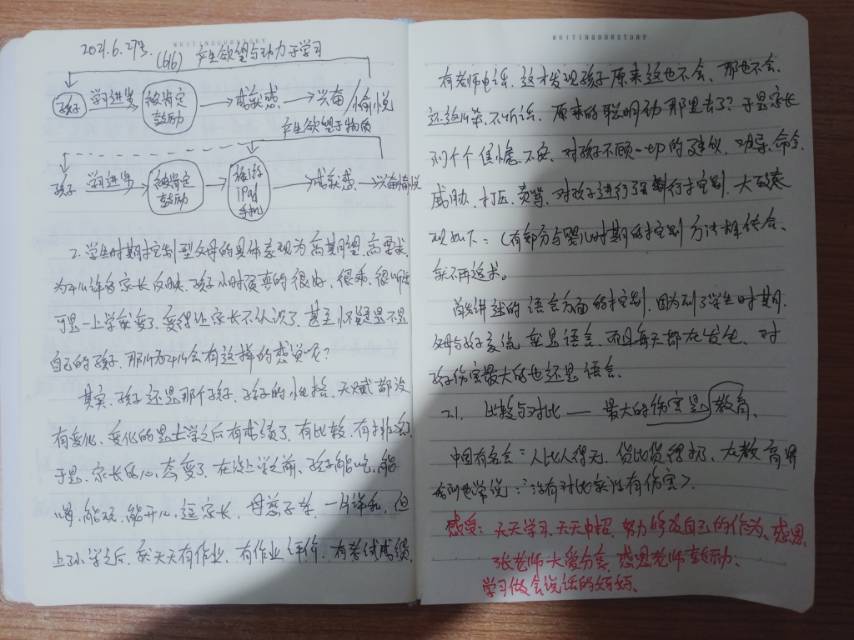 2021.6.27号
(616) 产生欲望与动力于学习
孩子 学习进步 被肯定鼓励 成就感 兴奋愉悦
产生欲望于物质
孩子 学习进步 被肯定鼓励 手机 成就感 兴奋愉悦
2. 学生时期控制型父母的具体表现为高期望,高要求,
为什么许多家长反映,孩子小时候真的很好,很乖,很
可是一上学就变了,变得让家长不认识了,甚至怀疑是不是
自己的孩子,那么为什么会有这样的感觉呢?
其实,孩子还是那个孩子,孩子的性格、天赋都没
有变化,变化的是上学之后有成绩了,有比较,有
于是,家长的心态变了,在没上学之前,孩子能吃,能
喝,能玩,能开心,这家长,母慈子孝,一片祥和,但
上小学之后,就天天有作业,有作业评价,有考试成绩,
有老师电话,这才发现孩子原来这也不会,那也不会,
还不听话,原来的聪明劲那里去了?于是家长
们个个焦虑不安,对孩子不顾一切的建议,命令,
威胁,打压,责骂,对孩子进行强制行控制,大致表
现如下:(有部分与婴儿时期的控制方法相结合,
就不再述。
首先讲述的语言方面的控制,因为到了学生时期,
父母与孩子交流,就是语言,而且每天都在发生,对
孩子伤害最大的也还是语言。
2.1. 比较与对比——最大的伤害是教育。
中国有名言:“人比人得死,货比货得扔,在教育界
常说:“没有对比就没有伤害”。
感受:天天学习,天天中招,努力修改自己的作为,感恩
张老师大爱分享,感恩老师鼓励、
学习做会说话的妈妈。